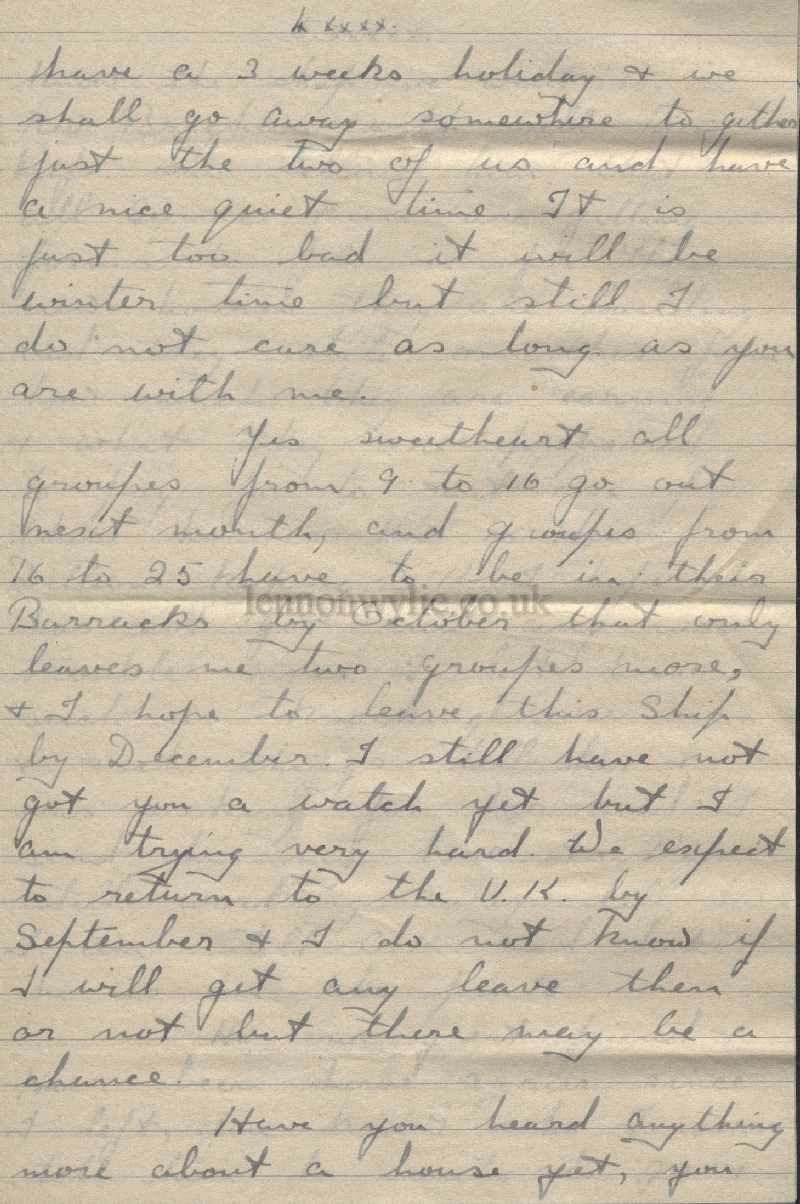 4 xxxx.
have a 3 weeks holiday & we
shall go away somewhere to gether
just the two of us and have
a nice quiet time. It is
just too bad it will be
winter time but still I
do not care as long as you
are with me.
Yes sweetheart all
groupes from 9 to 16 go out
next month, and groupes from
16 to 25 have to be in their
lennonwylie.co.uk
Barracks by October that only
leaves me two groupes more,
& I hope to leave this Ship
by December. I still have not
got you a watch yet but I
am trying very hard. We expect
to return to the U.K. by
September & I do not know if
I will get any leave then
or not but there may be a
chance.
Have you heard anything
more about a house yet, you